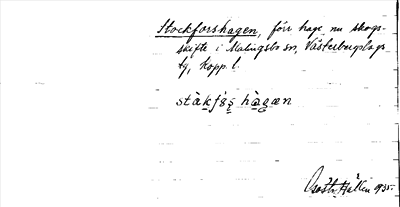 Stockforshagen, förr hage nu skogs-
skifte i Malingsbo sn, Västerbergslags
tg, Kopp. l.
stàkfo̤s̤ hàgan
Kjällén 1935.